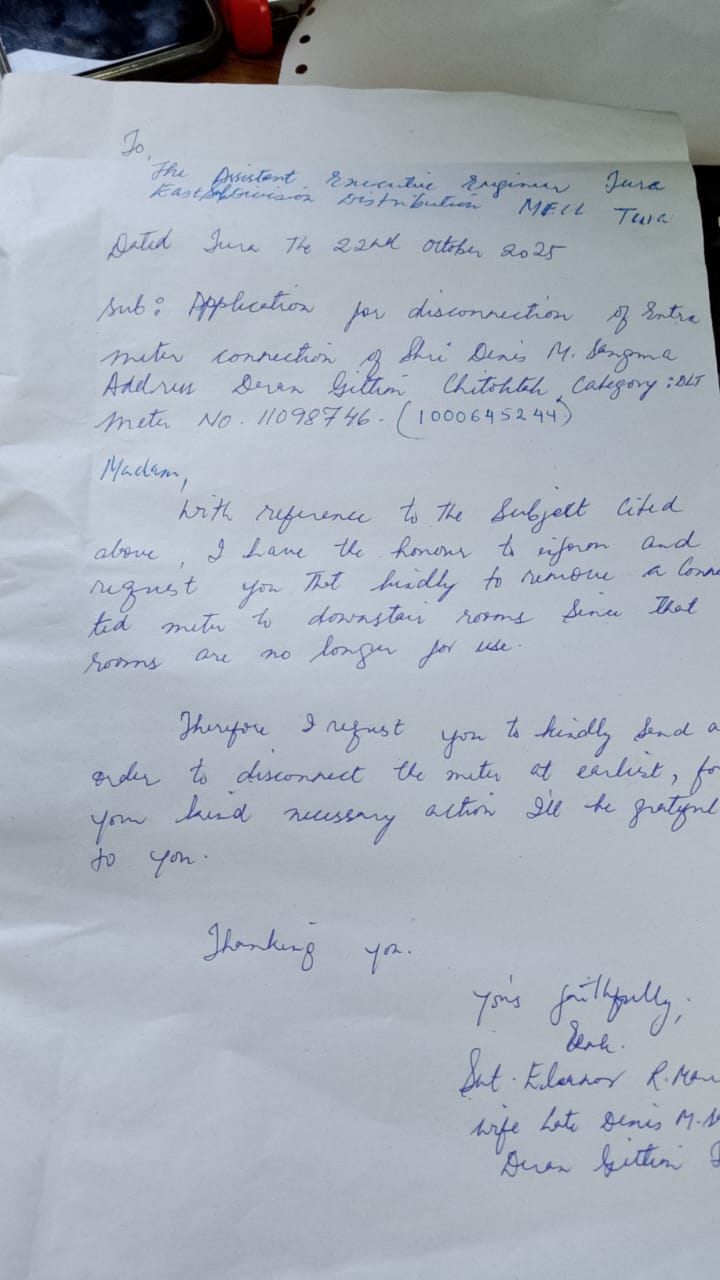 To,
The Assistant Executive Engineer Tura
East SubDivision Distribution MECL Tura
Dated Tura The 22nd October 2025
Sub: Application for disconnection of Extra
meter connection of Shri Denis M. Sangma
Address Deran Gittim Chitoktak, Category: DLT
Meter No. 11098746. (1000645244)
Madam,
With reference to the Subject Cited
above, I have the honour to inform and
request you That kindly to remove a Conne
ted meter to downstair rooms Since That
rooms are no longer for use.
Therefore I request you to kindly Send a
order to disconnect the meter at earlist, fo
your kind necessary action I'll be grateful
to you.
Thanking you.
Your's faithfully,
Smt. Elarnor R. Mar
wife Late Denis M.
Deran Gittim